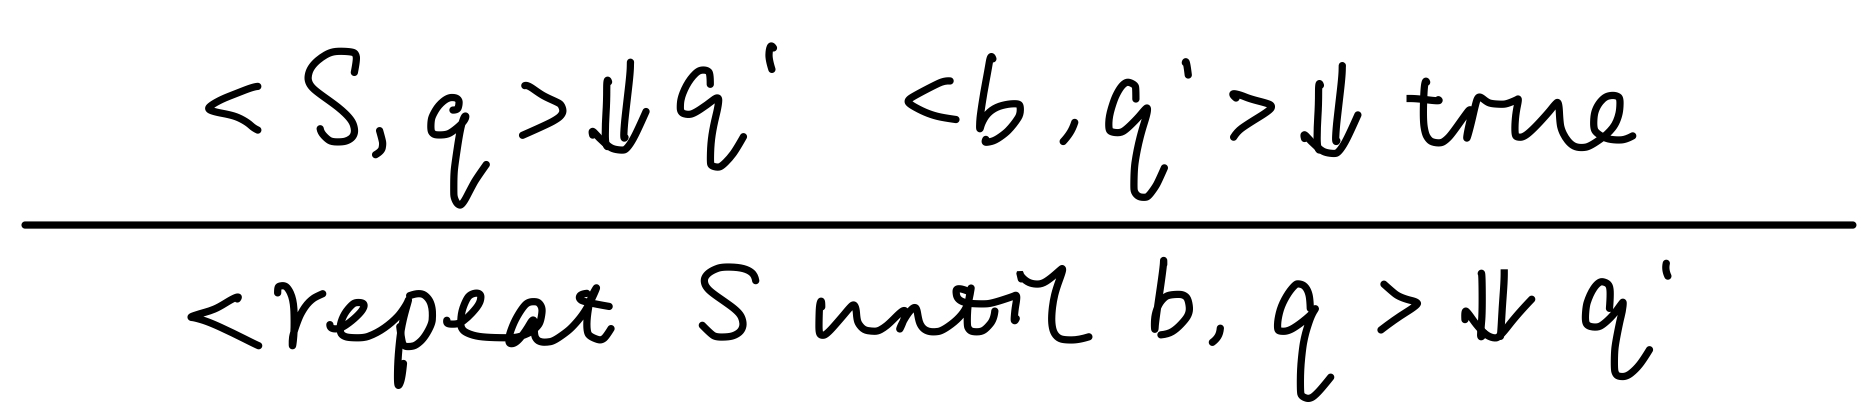 <S, q>⇓q' <b, q'>⇓true
<repeat S until b, q>⇓q'